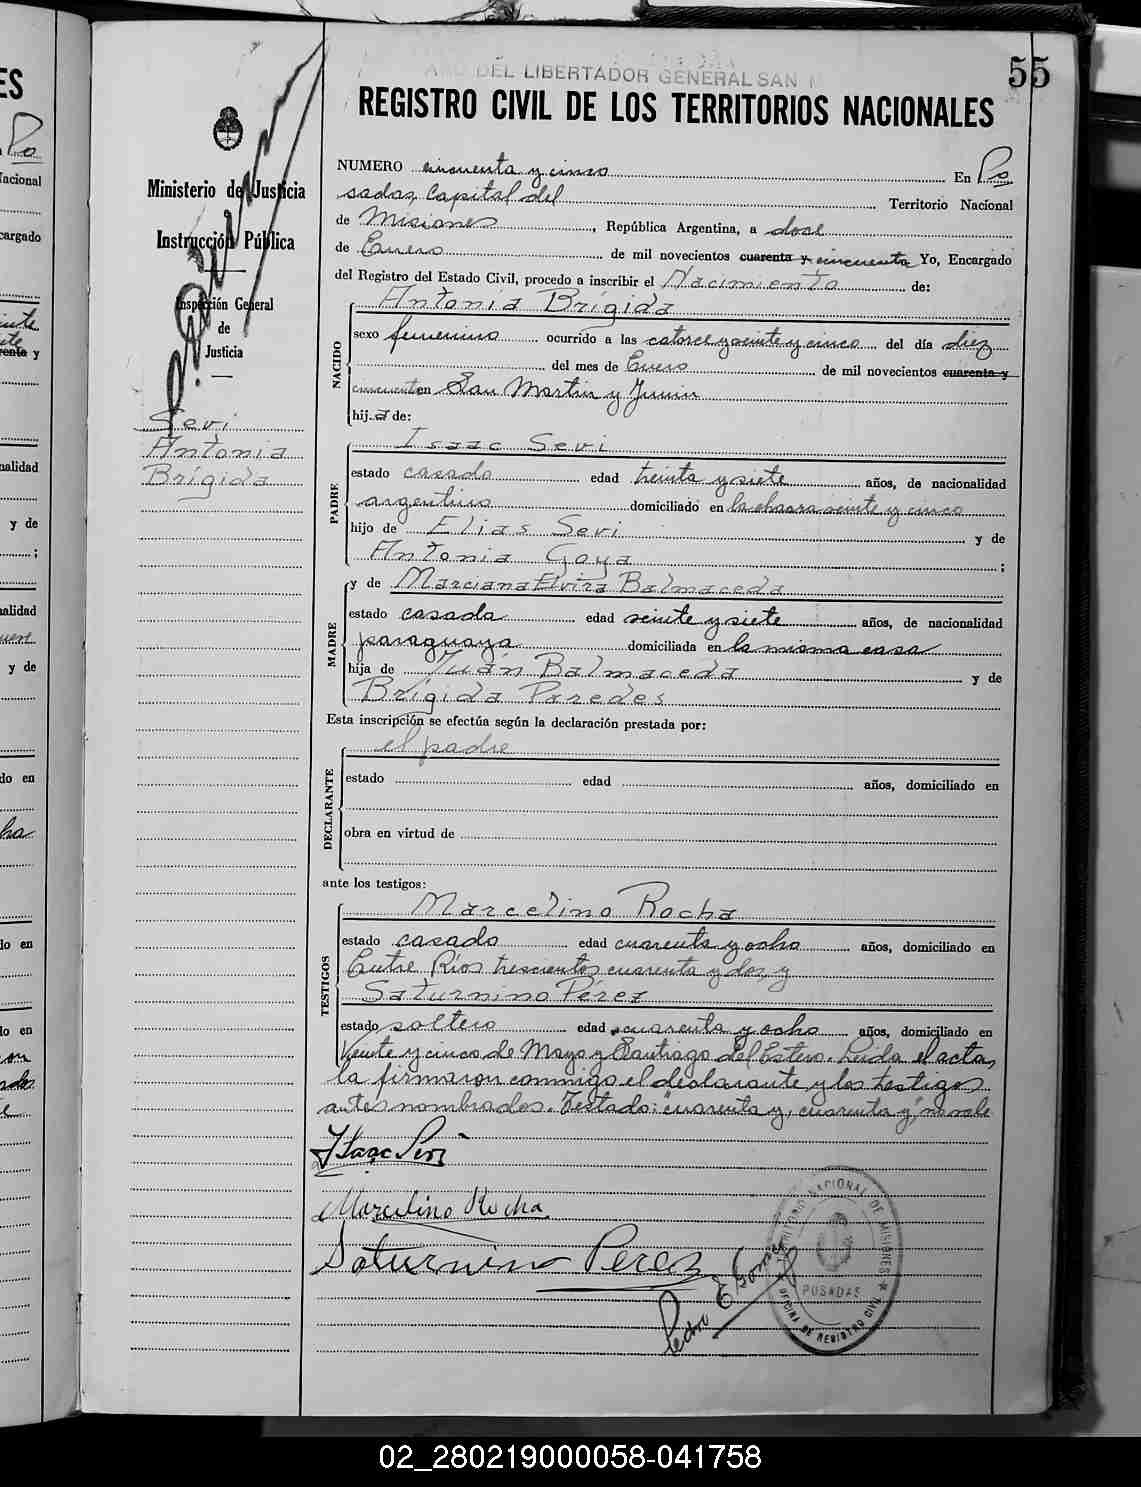 55
AÑO DEL LIBERTADOR GENERAL SAN
REGISTRO CIVIL DE LOS TERRITORIOS NACIONALES
Ministerio de Justicia
Instrucción Pública
Inspección General
de
Justicia
Sevi
Antonia
Brígida
NUMERO cincuenta y cinco En Po
sadas, Capital del Territorio Nacional
de Misiones, República Argentina, a doce
de Enero de mil novecientos cuarenta y cincuenta Yo, Encargado
del Registro del Estado Civil, procedo a inscribir el Nacimiento de:
NACIDO
Antonia Brígida
sexo femenino ocurrido a las catorce y veinte y cinco del día diez
del mes de Enero de mil novecientos cuarenta y
cincuenta en San Martin y Junin
hija de:
PADRE
Isaac Sevi
estado casado edad treinta y siete años, de nacionalidad
argentino domiciliado en la chacra veinte y cinco
hijo de Elías Sevi y de
Antonia Goya ;
MADRE
y de Marciana Elvira Balmaceda
estado casada edad veinte y siete años, de nacionalidad
paraguaya domiciliada en la misma casa
hija de Juán Balmaceda y de
Brígida Paredes
Esta inscripción se efectúa según la declaración prestada por:
DECLARANTE
el padre
estado edad años, domiciliado en
obra en virtud de
ante los testigos:
TESTIGOS
Marcelino Rocha
estado casado edad cuarenta y ocho años, domiciliado en
Entre Ríos trescientos cuarenta y dos, y
Saturnino Pérez
estado soltero edad cuarenta y ocho años, domiciliado en
Veinte y cinco de Mayo y Santiago del Estero. Leída el acta,
la firmaron conmigo el declarante y los testigos
antes nombrados. Testado: "cuarenta y, cuarenta y", no vale
Isaac Sevi
Marcelino Rocha
Saturnino Perez
Pedro E Gomez
TERRITORIO NACIONAL DE MISIONES
POSADAS
OFICINA DE REGISTRO CIVIL
02_280219000058-041758